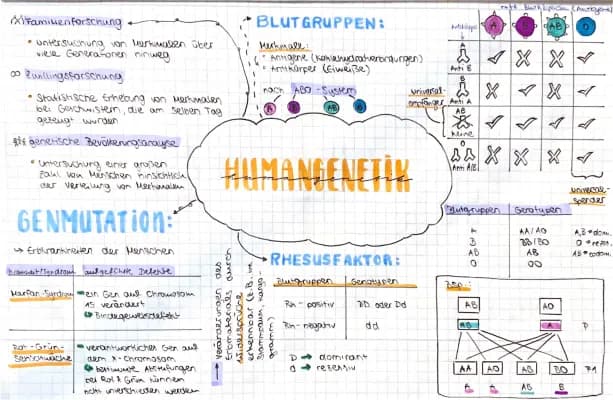 Familienforschung
untersuchung von Merkmalen über
viele Generationen hinweg
Zwillingsforschung
statistische Erhebung von Merkmalen
bei Geschwistern, die am selben Tag
gezeugt wurden
genetische Bevölkerungsanalyse
untersuchung einer großen
Zahl von Menschen hinsichtlich
der Verteilung von Merkmalen
GENMUTATION:
→ Erbkrankheiten des Menschen
Marfan-Syndrom
ein Gen auf Chromosom
15 verändert
Bindegewebsdefekt
Rot-Grün-
Sehschwäche
verantwortliches Gen auf
dem X-Chromosom
bestimmte Abstufungen
bei Rot & Grün können
nicht unterschieden werden
BLUTGRUPPEN:
Merkmale:
Antigene (Kohlenhydratverbindungen)
Antikörper (Eiweiße)
nach AB0-System
A
AB
B
HUMANGENETIK
humangenetik
Veränderungen des
Erbmaterials durch
RHESUSFAKTOR:
Blutgruppen Genotypen
Rh-positiv DD oder Dd
Rh-negativ dd
D → dominant
d → rezessiv
A B AB 0
A
Anti B
B
Anti A
AB
Keine
0
Anti A/B
universal-
empfänger
universal-
spender
Blutgruppen Genotypen
A AA/A0
B BB/B0
AB AB
0 00
A,B = dom.
0 = rezes.
AB = kodom.
Bsp.:
AB A0
AB A P
AA A0 AB B0 F1
A A AB B